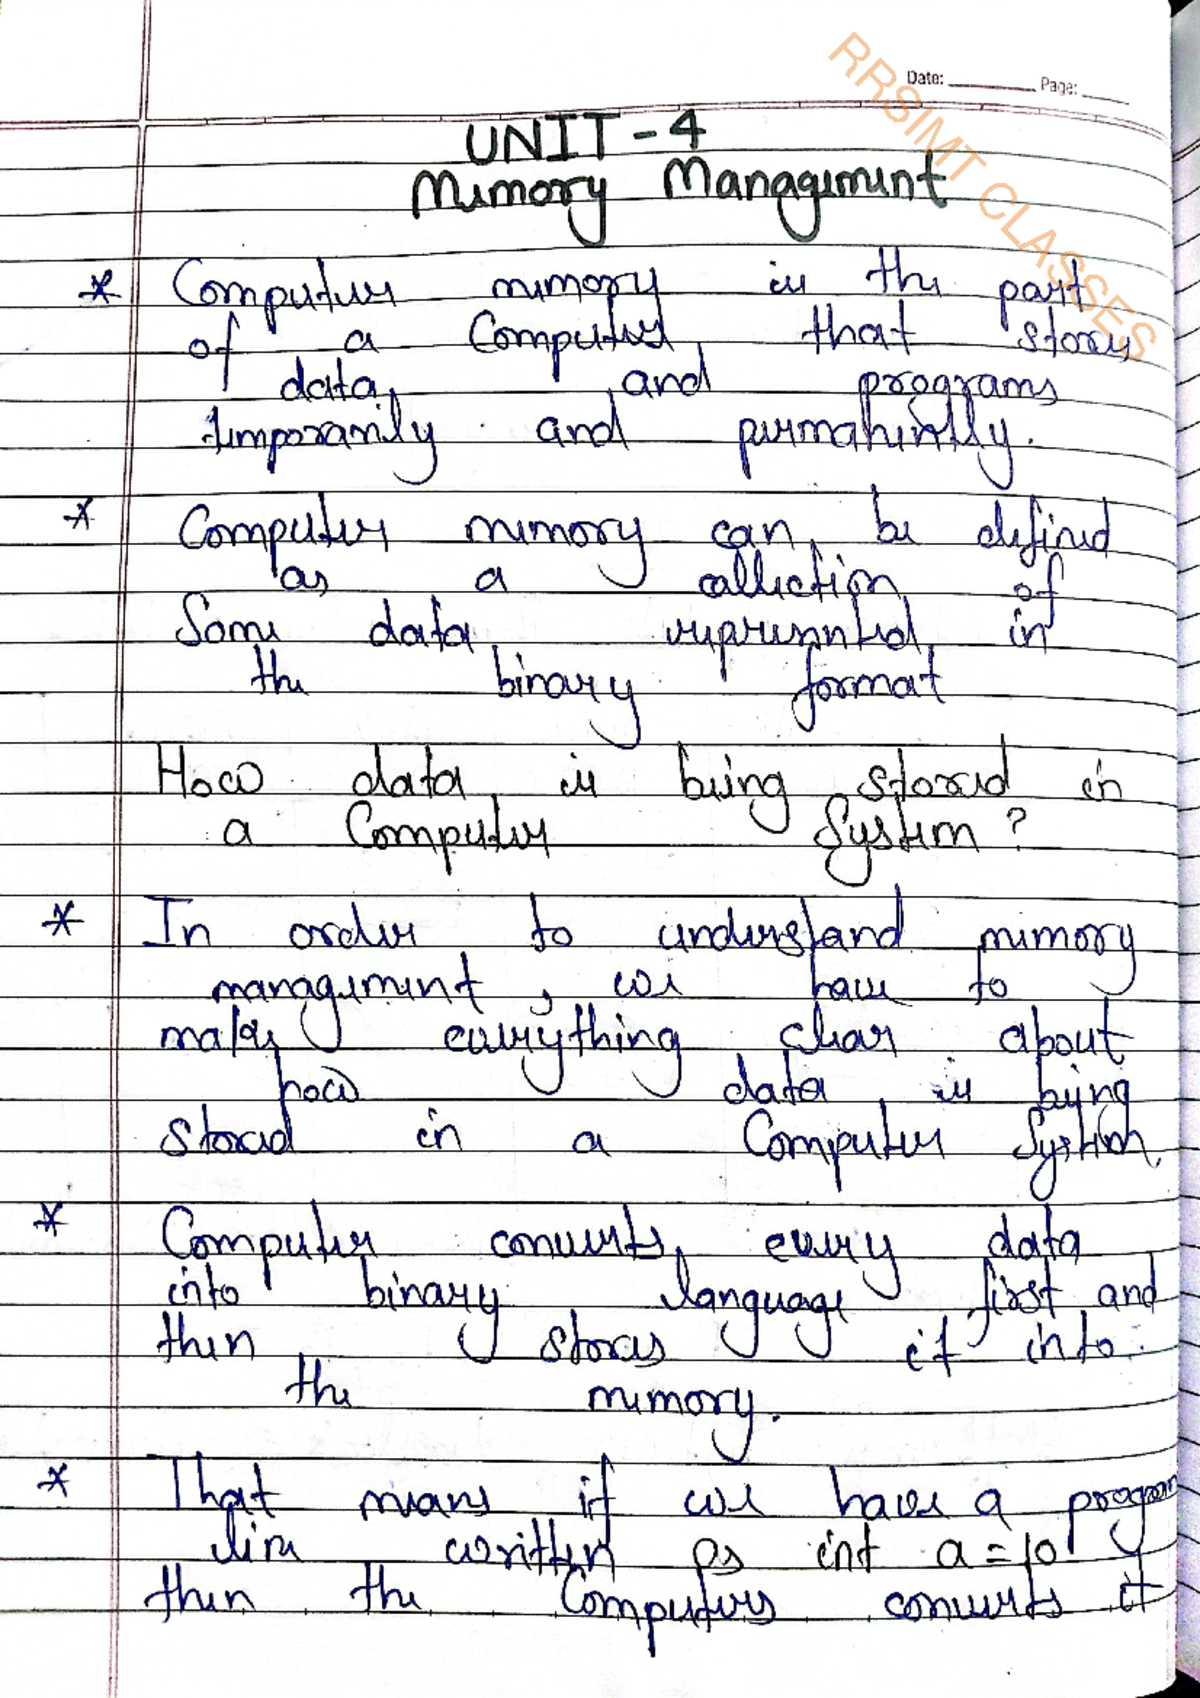 RRSIMT CLASSES
Date: Page:
UNIT - 4
Memory Management
* Computer memory is the part
of a Computer that stores
data and programs
temporarily and permanently.
* Computer memory can be defined
as a collection of
Some data represented in
the binary format
How data is being stored in
a Computer System?
* In order to understand memory
management, we have to
make everything clear about
how data is being
stored in a Computer System.
* Computer converts every data
into binary language first and
then stores it into
the memory.
* That means if we have a program
line written as int a = 10
then the Computers converts it